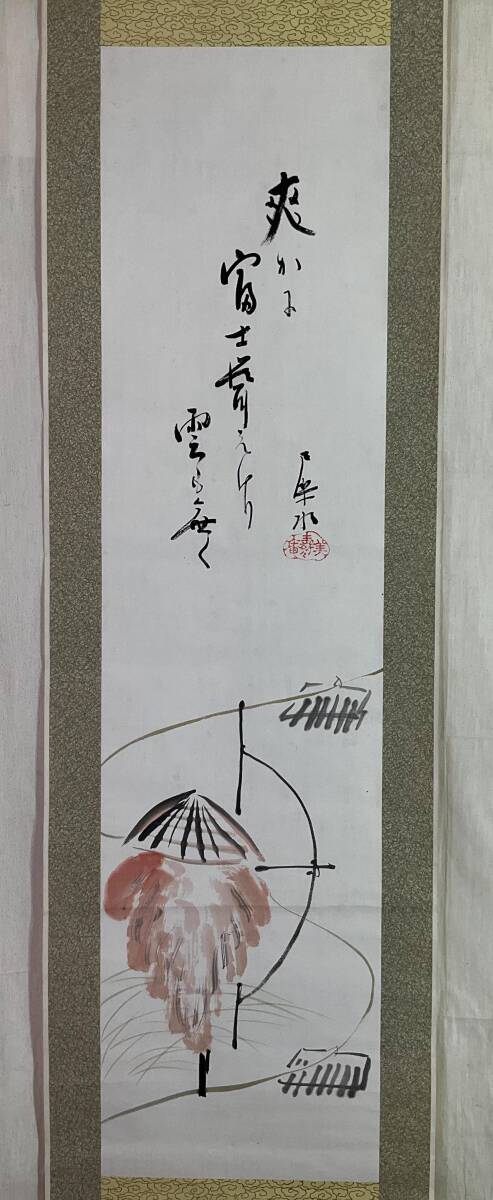 爽かに
富士聳えけり
雲も無く
楽水